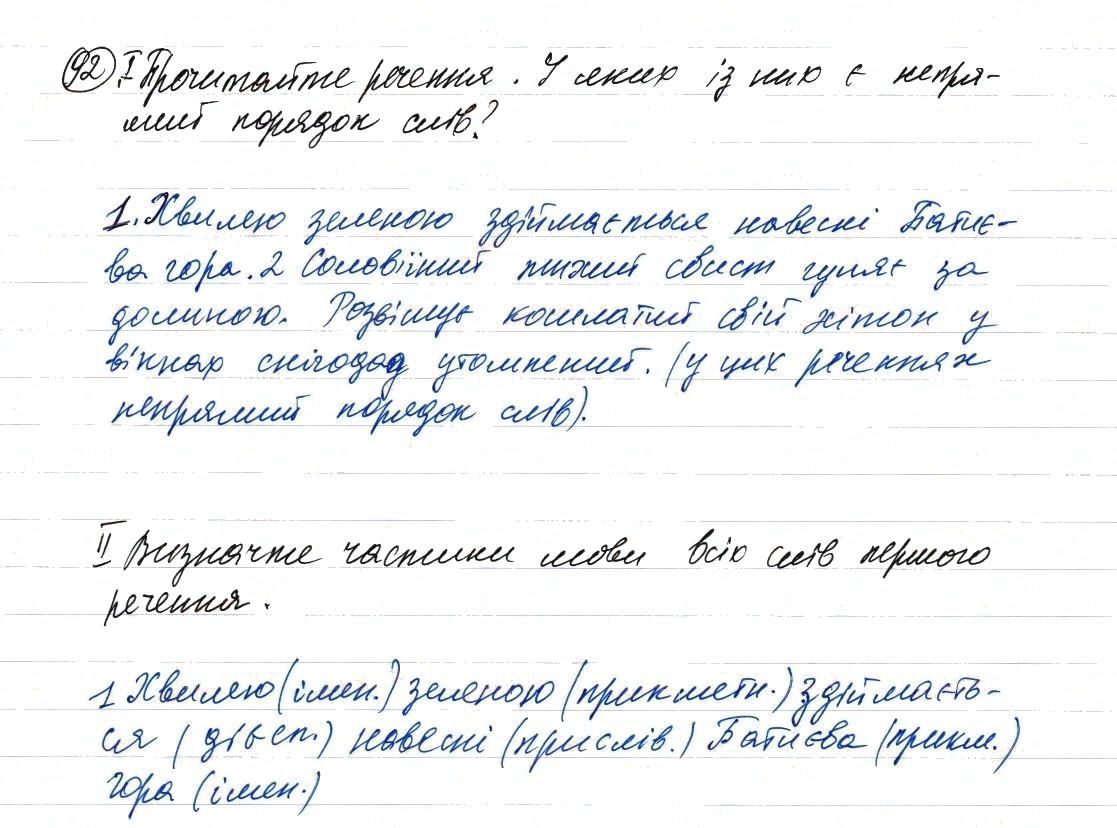 92 I Прочитайте речення. У яких із них є непря-
мий порядок слів?
1. Хвилею зеленою здіймається навесні Батиє-
ва гора. 2 Соловїний тихий свист гуляє за
долиною. Розвішує кошлатий свій хітон у
вікнах снігопад утомлений. (у цих реченнях
непрямий порядок слів).
II Визначте частини мови всіх слів першого
речення.
1 Хвилею (імен.) зеленою (прикметн.) здіймаєть-
ся (дієсл.) навесні (прислів.) Батиєва (прикм.)
гора (імен.)